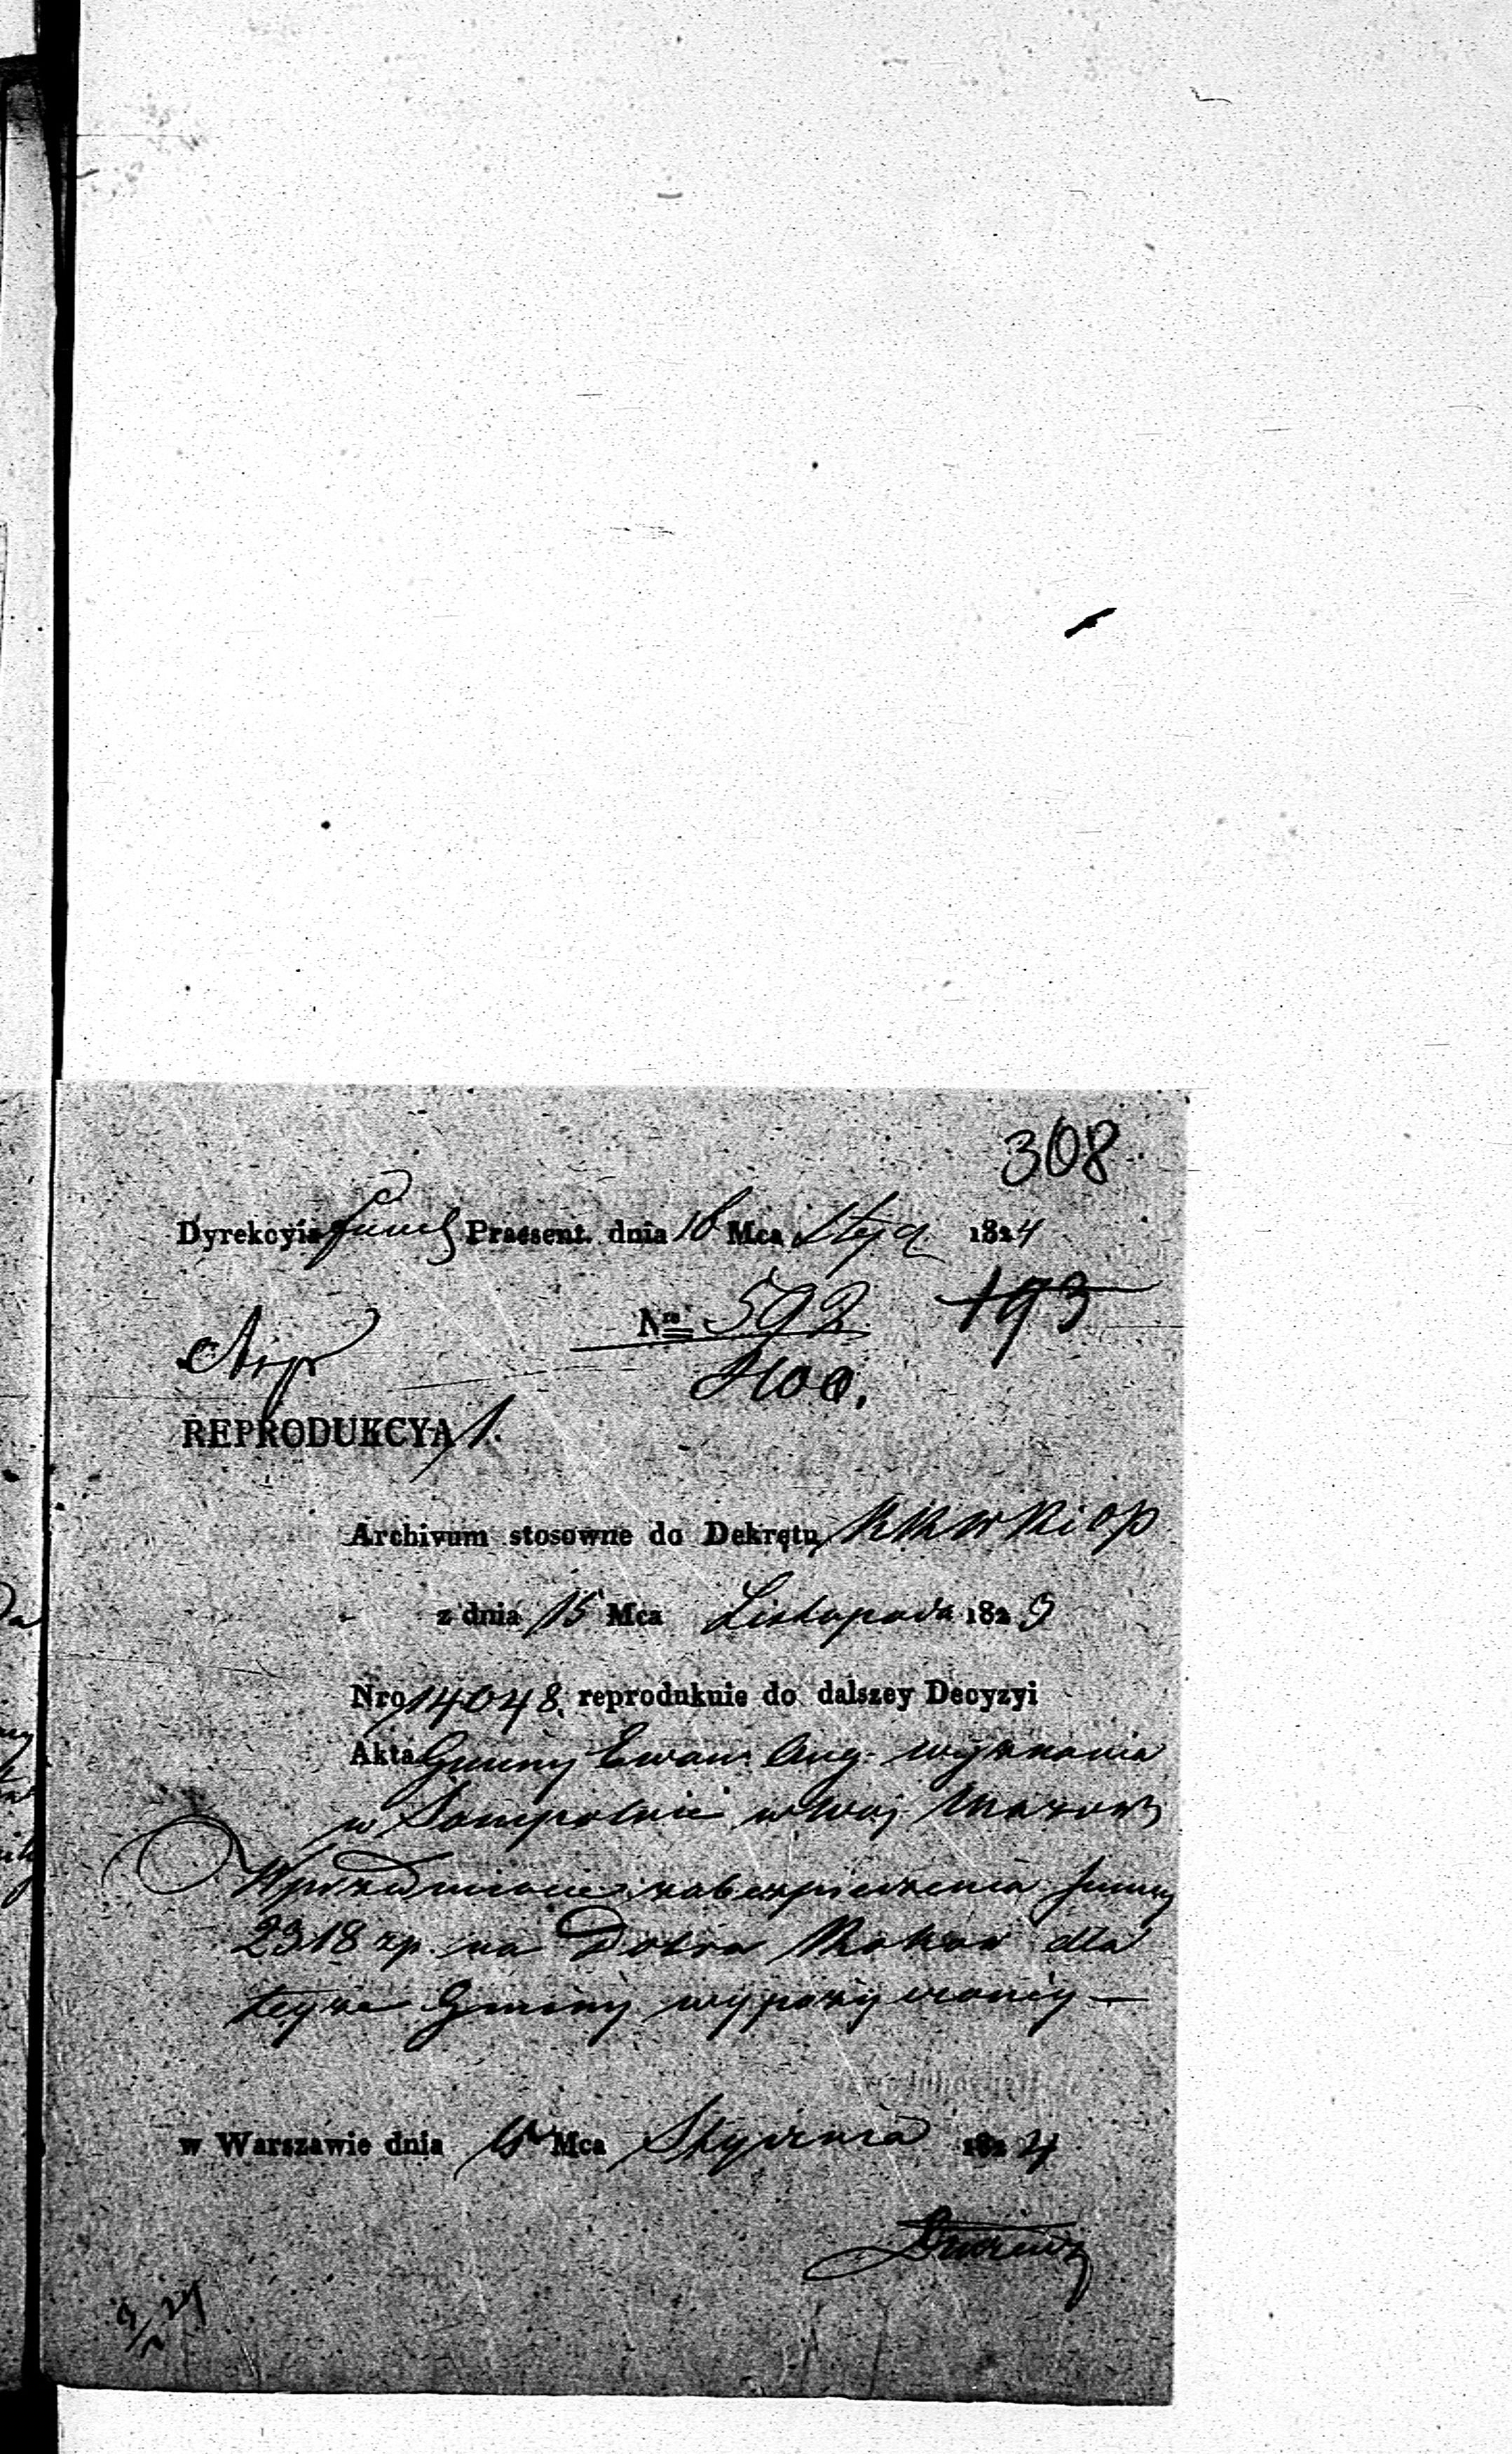 308
Dyrekcyia Praesent. dnia 16 Mca Stycz 1824
Nro 592 193
REPRODUKCYA 1.
Archivum stosowne do Dekretu
z dnia 15 Mca Listopada 1823
Nro 14048 reprodukuie do dalszey Decyzyi
Akta Gminy Ewan. Aug. wyznania
w Sompolnie w Woj. Mazow
W przedmiocie zabezpieczenia Summy
2318 zp. na Dobra dla
teyże Gminy wypożyczoney —
w Warszawie dnia Mca Stycznia 1824